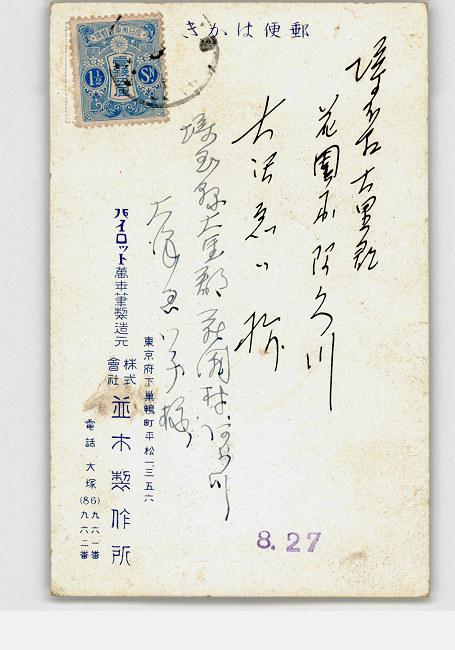 郵便はかき
1½ Sn.
埼玉縣大里郡
花園村阿久川
大澤
埼玉縣大里郡花園村
大澤
8.27
東京府下巣鴨町平松一三五六
パイロット萬年筆製造元
株式會社 並木製作所
電話 大塚(86)九六一番
九六二番